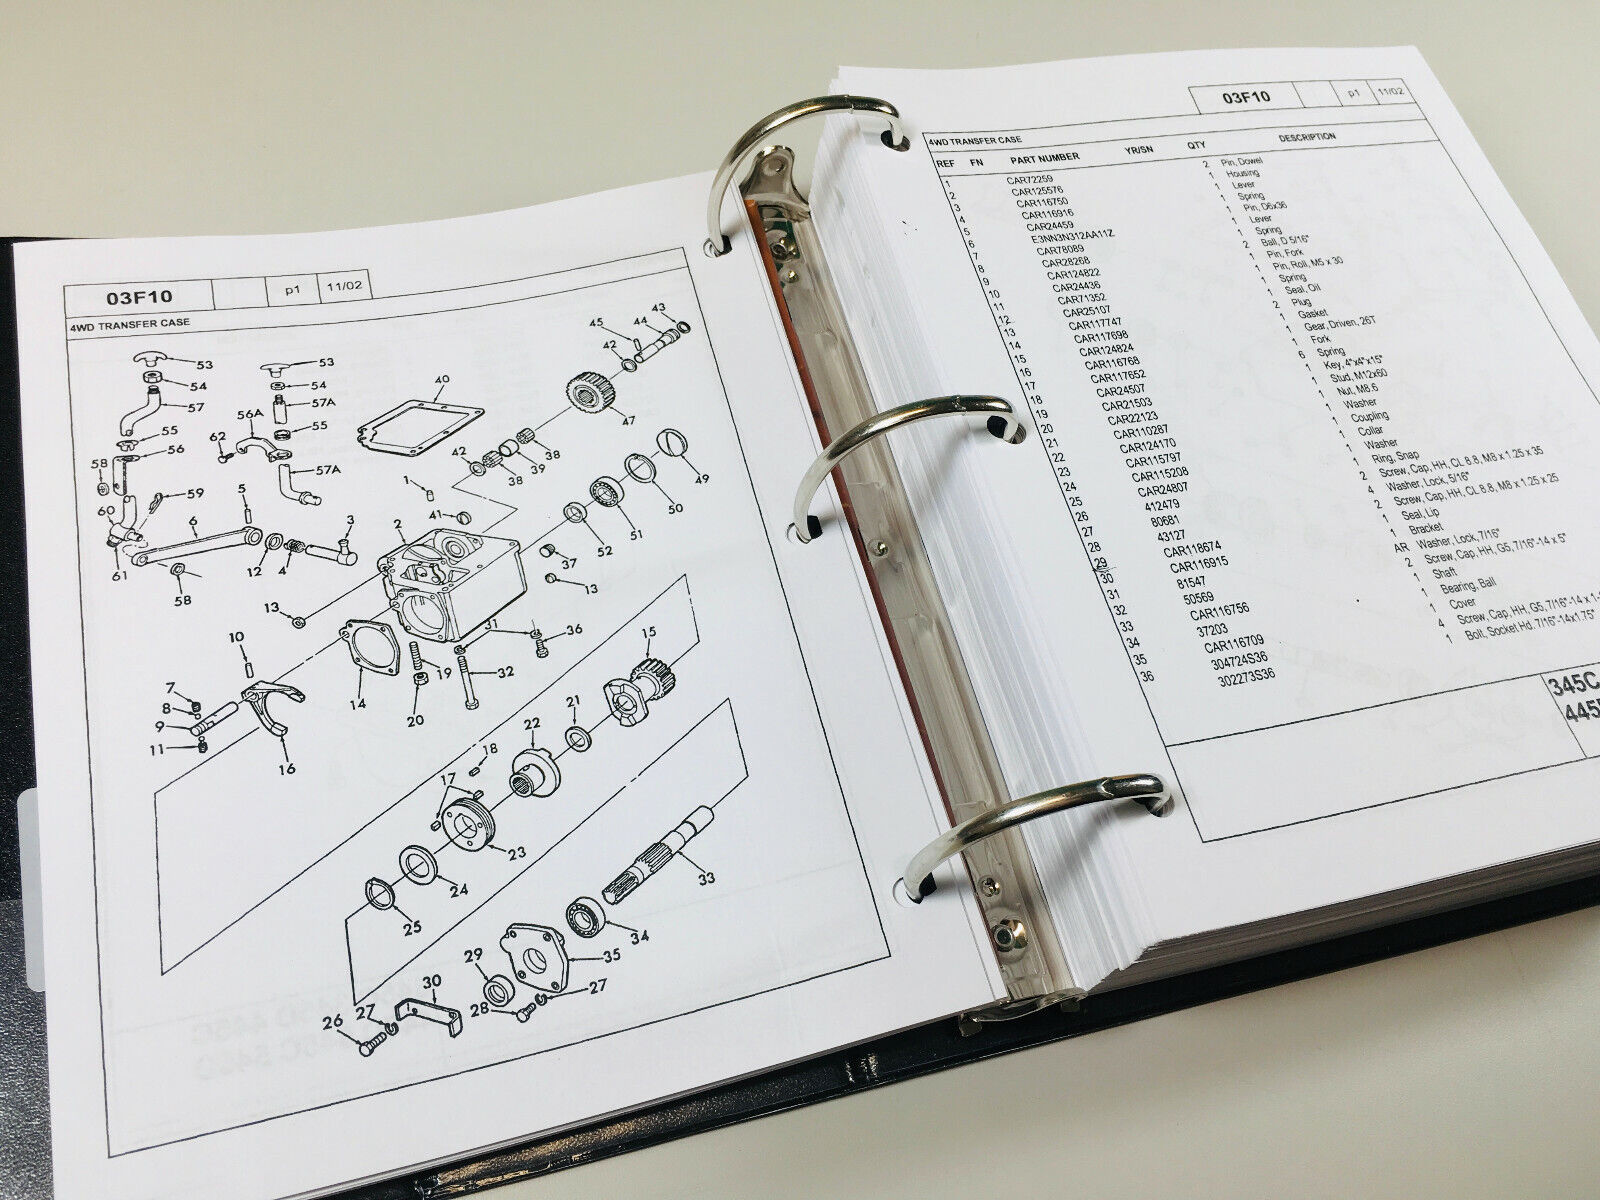 03F10 p1 11/02
4WD TRANSFER CASE
53 53
54 54
57 57A
56A
55 55
56 62
58 57A
59
60
5
6
3
12 4
61
58
13
40
45 44 43
42
47
42 38
39
38
49
50
51
52
1
41
2
37
13
31
36
15
14
19
20
32
10
7
8
9
11
16
22
21
18
17
23
24
25
33
34
35
29
27
28
30
27
26
03F10 p1 11/02
4WD TRANSFER CASE
REF FN PART NUMBER YR/SN QTY DESCRIPTION
1 CAR72259 2 Pin, Dowel
2 CAR125576 1 Housing
3 CAR116750 1 Lever
4 CAR116916 1 Spring
5 CAR24459 1 Pin, D6x36
6 E3NN3N312AA11Z 1 Lever
7 CAR78089 1 Spring
8 CAR28268 2 Ball, D 5/16"
9 CAR124822 1 Pin, Fork
10 CAR24436 1 Pin, Roll, M5 x 30
11 CAR71352 1 Spring
12 CAR25107 1 Seal, Oil
13 CAR117747 2 Plug
14 CAR117698 1 Gasket
15 CAR124824 1 Gear, Driven, 26T
16 CAR116768 1 Fork
17 CAR117652 6 Spring
18 CAR24507 1 Key, 4"x4"x15"
19 CAR21503 1 Stud, M12x60
20 CAR22123 1 Nut, M8.6
21 CAR110267 1 Washer
22 CAR124170 1 Coupling
23 CAR115797 1 Collar
24 CAR115208 1 Washer
25 CAR24807 1 Ring, Snap
26 412479 2 Screw, Cap, HH, CL 8.8, M8 x 1.25 x 35
27 80681 4 Washer, Lock, 5/16"
28 43127 2 Screw, Cap, HH, CL 8.8, M8 x 1.25 x 25
29 CAR118674 1 Seal, Lip
30 CAR116915 1 Bracket
31 81547 AR Washer, Lock, 7/16"
32 50569 2 Screw, Cap, HH, G5, 7/16"-14 x 5"
33 CAR116756 1 Shaft
34 37203 1 Bearing, Ball
35 CAR116709 1 Cover
36 304724S36 4 Screw, Cap, HH, G5, 7/16"-14 x
302273S36 1 Bolt, Socket Hd. 7/16"-14x1.75"
345C